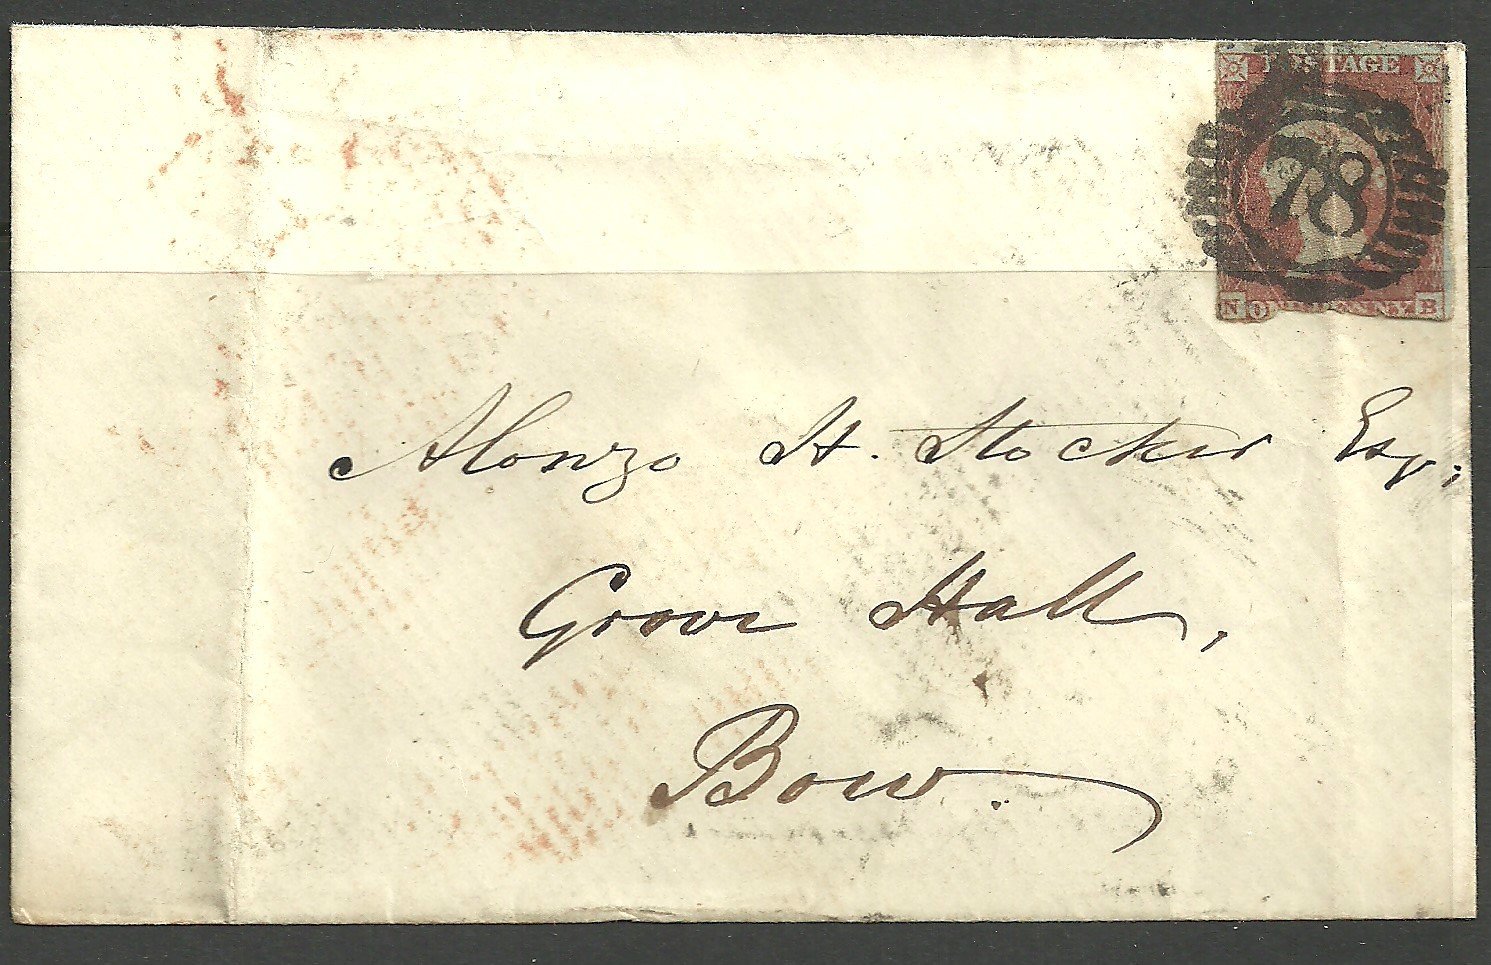 POSTAGE
78
N ONE PENNY B
Alonzo H. Stocker Esq.
Grove Hall,
Bow.